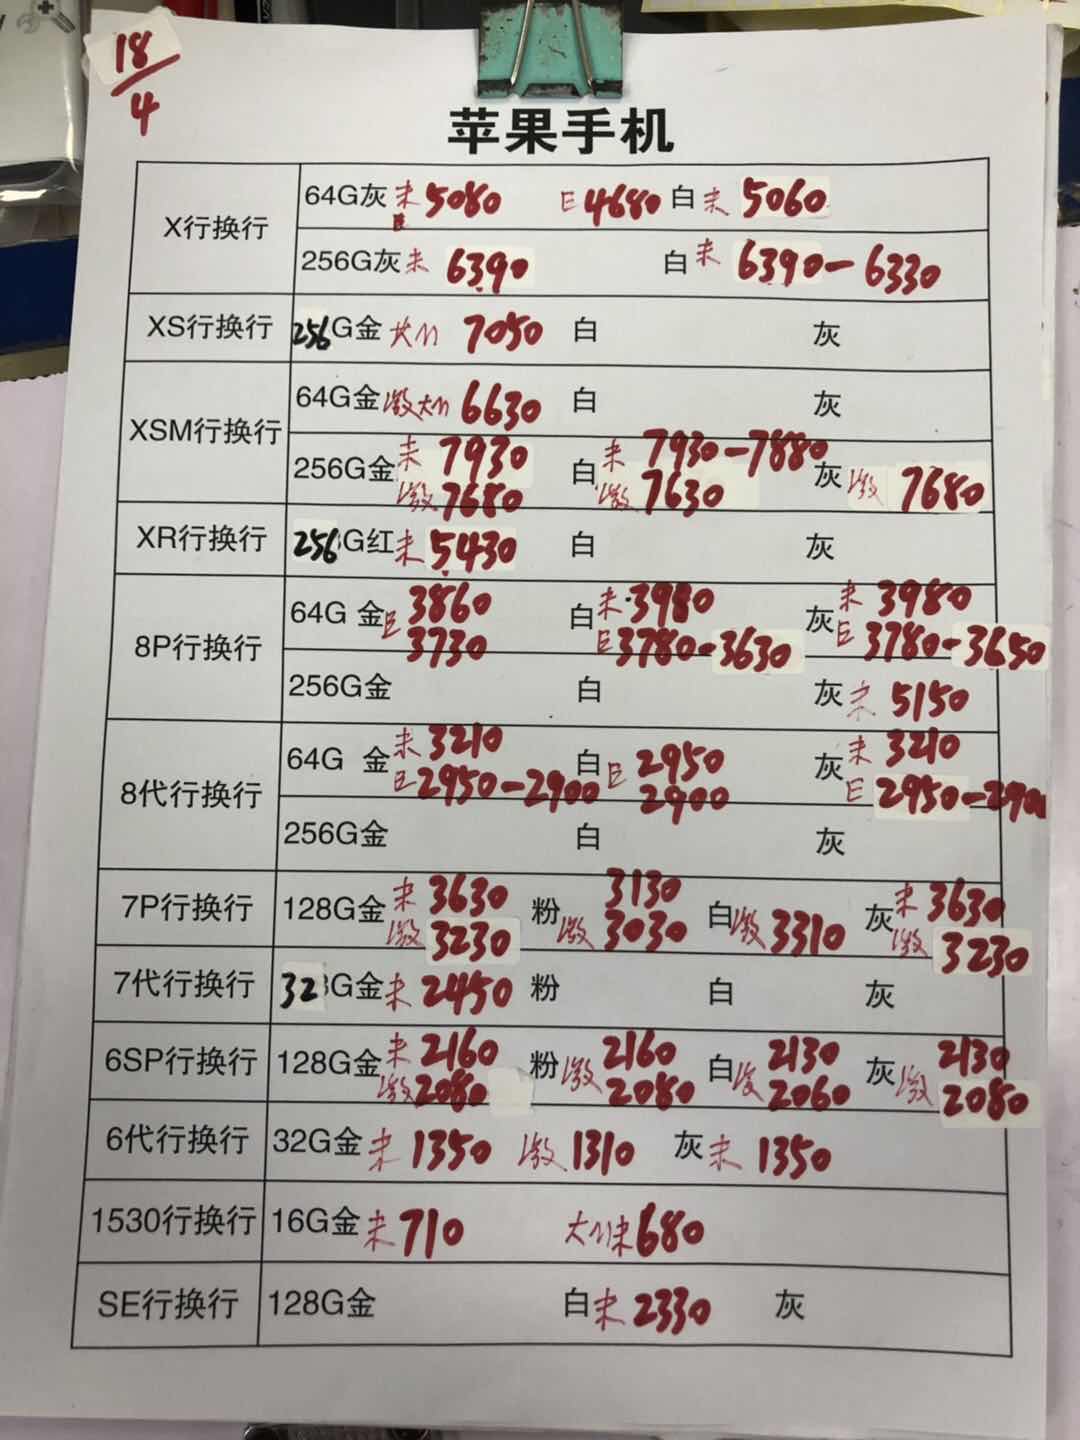 18/4
苹果手机
X行换行
64G灰 未 5080 E 4680 白 未 5060
256G灰 未 6390 白 未 6390-6330
XS行换行
256G金 7050 白 灰
XSM行换行
64G金 激 6630 白 灰
256G金 未 7930 白 未 7930-7880 灰 激 7680
激 7680 激 7630
XR行换行
256G红 未 5430 白 灰
8P行换行
64G 金 3860 白 未 3980 灰 未 3980
E 3730 E 3780-3630 E 3780-3650
256G金 白 灰 未 5150
8代行换行
64G 金 未 3210 白 E 2950 灰 未 3210
E 2950-2900 2900 E 2950-290
256G金 白 灰
7P行换行
128G金 未 3630 粉 3130 白 激 3310 灰 未 3630
激 3230 激 3030 激 3230
7代行换行
32G金 未 2450 粉 白 灰
6SP行换行
128G金 未 2160 粉 激 2160 白 2130 灰 2130
激 2080 2080 2060 激 2080
6代行换行
32G金 未 1350 激 1310 灰 未 1350
1530行换行
16G金 未 710 未 680
SE行换行
128G金 白 未 2330 灰